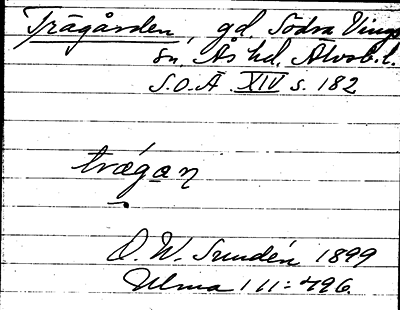 Trägården, gd. Södra Vings
sn, Ås hd, Älvsb. l.
S.O.Ä XIV s. 182
trǽgan
O. W. Sundén 1899
Ulma 111:496.